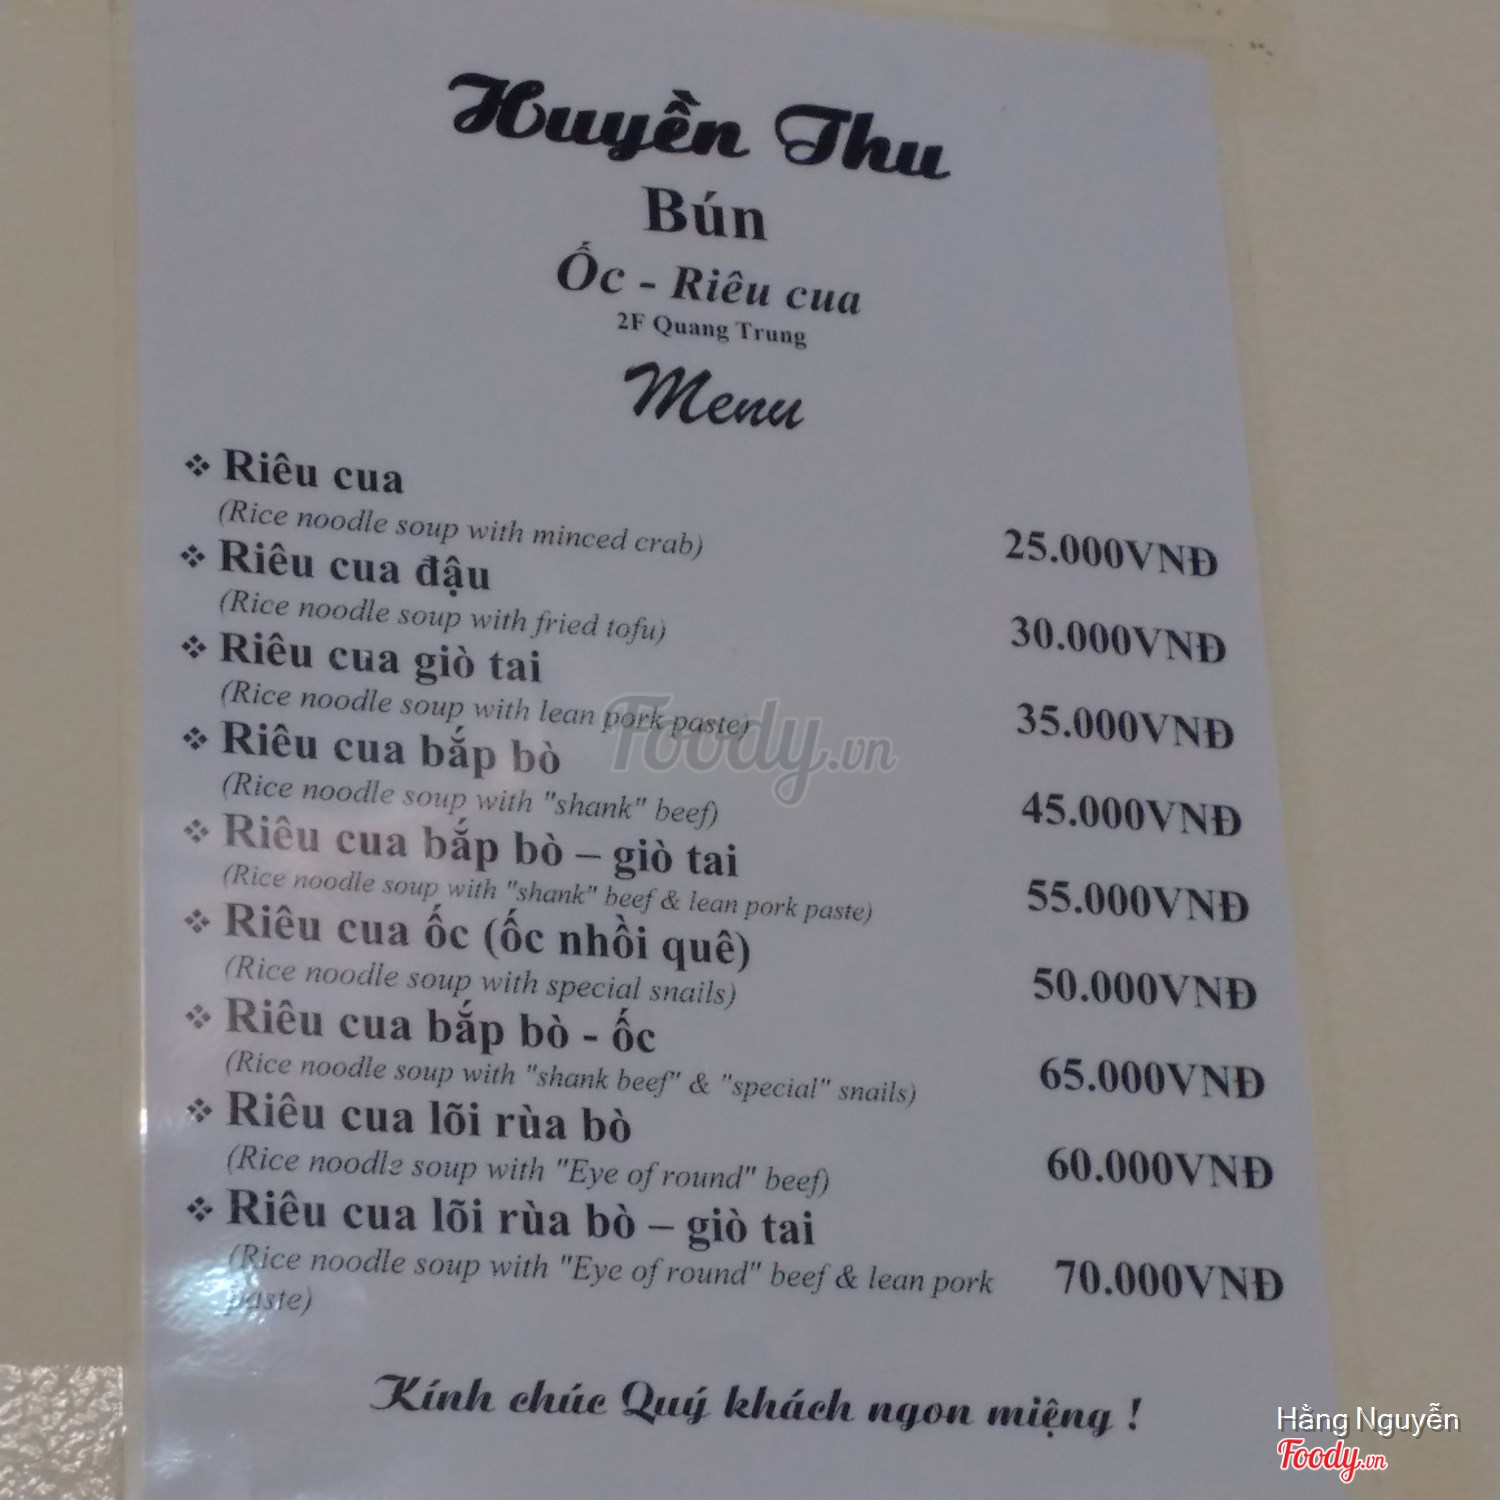 Huyền Thu
Bún
Ốc - Riêu cua
2F Quang Trung
Menu
❖ Riêu cua
(Rice noodle soup with minced crab) 25.000VNĐ
❖ Riêu cua đậu
(Rice noodle soup with fried tofu) 30.000VNĐ
❖ Riêu cua giò tai
(Rice noodle soup with lean pork paste) 35.000VNĐ
❖ Riêu cua bắp bò
(Rice noodle soup with "shank" beef) 45.000VNĐ
❖ Riêu cua bắp bò – giò tai
(Rice noodle soup with "shank" beef & lean pork paste) 55.000VNĐ
❖ Riêu cua ốc (ốc nhồi quê)
(Rice noodle soup with special snails) 50.000VNĐ
❖ Riêu cua bắp bò - ốc
(Rice noodle soup with "shank beef" & "special" snails) 65.000VNĐ
❖ Riêu cua lõi rùa bò
(Rice noodle soup with "Eye of round" beef) 60.000VNĐ
❖ Riêu cua lõi rùa bò – giò tai
(Rice noodle soup with "Eye of round" beef & lean pork 70.000VNĐ
paste)
Kính chúc Quý khách ngon miệng !
Foody.vn
Hằng Nguyễn
Foody.vn